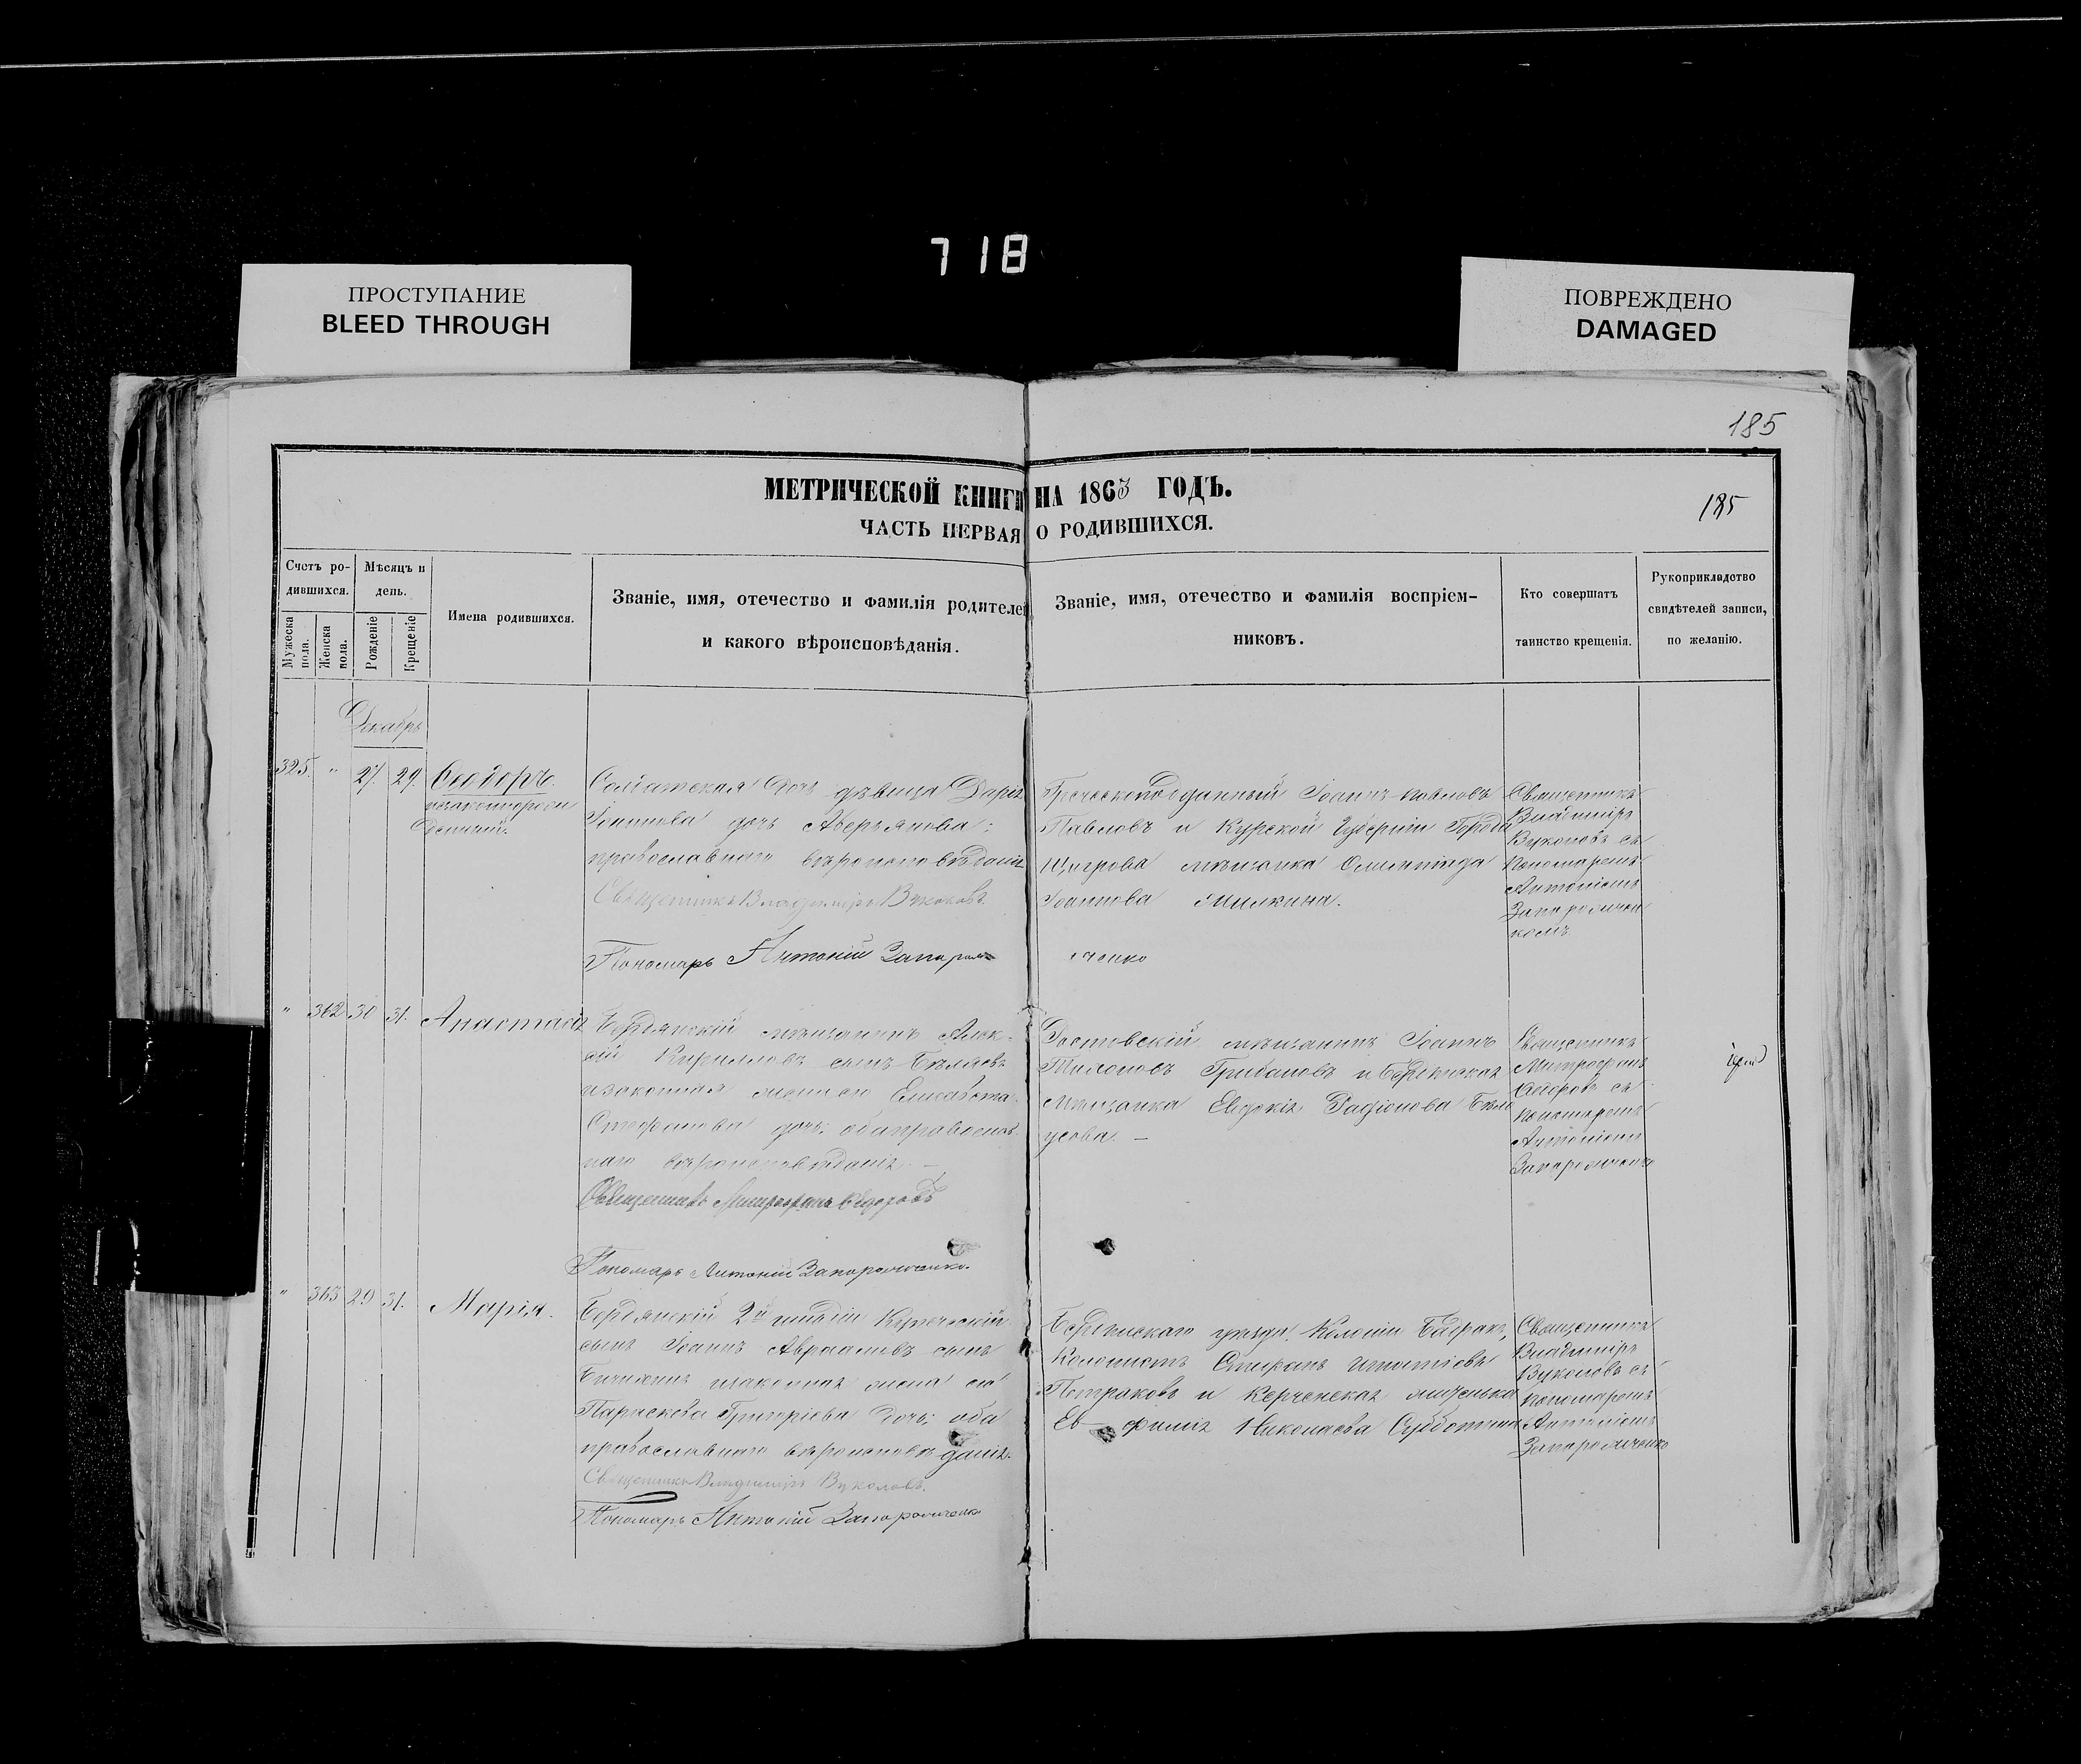 718
ПРОСТУПАНИЕ
BLEED THROUGH
ПОВРЕЖДЕНО
DAMAGED
185
МЕТРИЧЕСКОЙ КНИГИ НА 1863 ГОДЪ.
185
ЧАСТЬ ПЕРВАЯ О РОДИВШИХСЯ.
Счетъ ро-
дившихся.
Мужеска пола.
Женска пола.
Мѣсяцъ и
день.
Рожденіе
Крещеніе
Имена родившихся.
Званіе, имя, отечество и фамилія родителей
и какого вѣроисповѣданія.
Званіе, имя, отечество и фамилія воспріем-
никовъ.
Кто совершатъ
таинство крещенія.
Рукоприкладство
свидѣтелей записи,
по желанію.
Декабрь
325. " 27. 29. Ѳеодоръ.
незаконнорож
денный.
Солдатская дочь дѣвица Дарія
дочь Аверьянова;
православнаго вѣроисповѣданія
Священникъ Владиміръ Вуколовъ
Пономарь Антоній Запорож
ченко
Греческоподданный Іоаннъ Павловъ
Павловъ и Курской Губерніи Города
Щигрова мѣщанка Олимпіада
Іоаннова Милкина.
Священникъ
Владиміръ
Вуколовъ съ
пономаремъ
Антоніемъ
" 362 30 31. Анастасія
Бердянскій мѣщанинъ Алек-
сій Кирилловъ сынъ Бѣляевъ
изаконная жена его Елисавета
Стефанова дочь; оба православ-
наго вѣроисповѣданія. —
Священникъ Митрофанъ Ѳедоровъ
Пономарь Антоній Запорожченко.
Ростовскій мѣщанинъ Іоаннъ
Тихоновъ Грибановъ и Бердянская
мѣщанка Евдокія Радіонова Бѣло
усова. —
Священникъ
Митрофанъ
Ѳедоровъ съ
пономаремъ
Антоніемъ
Запорожченко
" 363 29 31. Марія.
Бердянскій 2й гильдіи Купеческій
сынъ Іоаннъ Авраамовъ сынъ
изаконная жена его
Параскева Григоріева дочь; оба
православнаго вѣроисповѣданія.
Священникъ Владиміръ Вуколовъ.
Пономарь Антоній Запорожченко
Бердянскаго уѣзда, Колоніи
Колонистъ Стефанъ Игнатіевъ
Петраковъ и Керченская
Ев фимія Николаева Субботина
Священникъ
Владиміръ
Вуколовъ съ
пономаремъ
Антоніемъ
Запорожченко